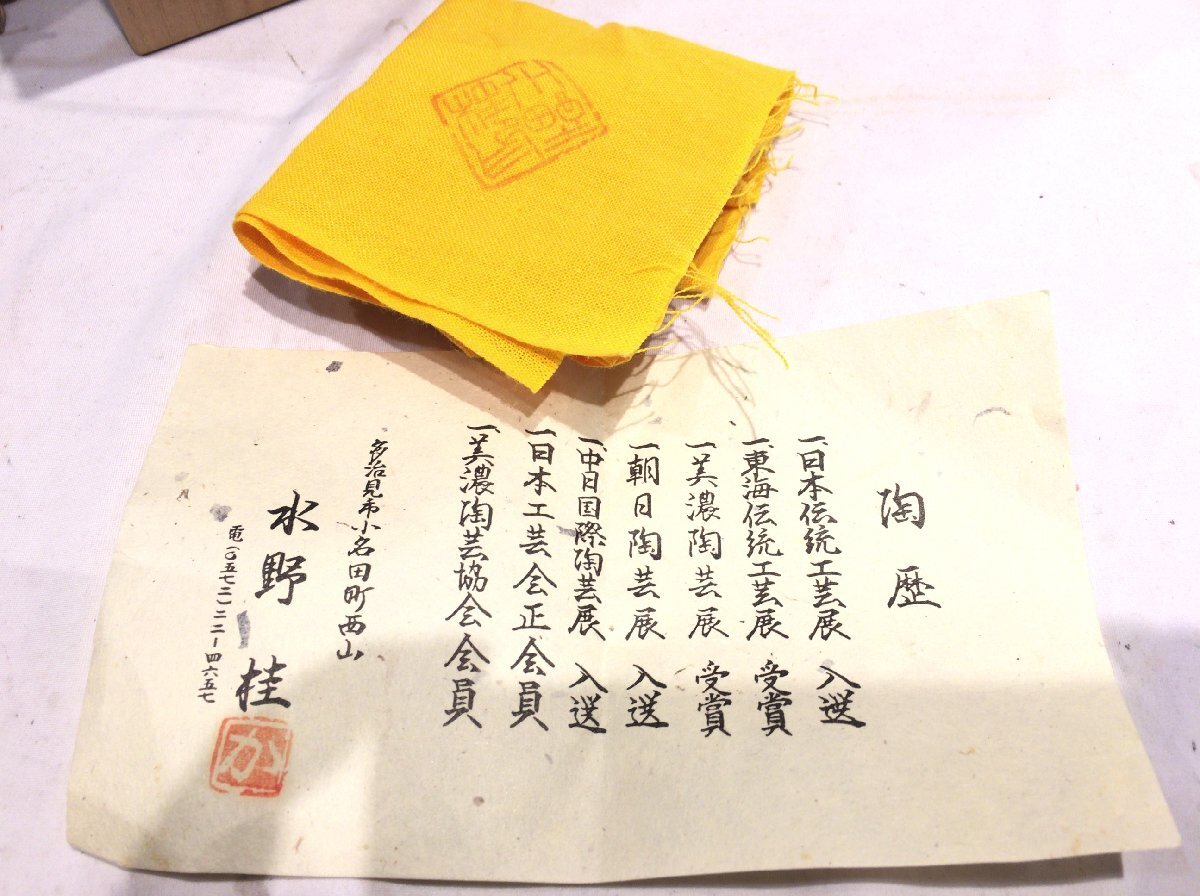 陶歴
一、日本伝統工芸展 入選
一、東海伝統工芸展 受賞
一、美濃陶芸展 受賞
一、朝日陶芸展 入選
一、中日国際陶芸展 入選
一、日本工芸会正会員
一、美濃陶芸協会会員
多治見市小名田町西山
水野 桂
電(〇五七二)二二-四六五七
か